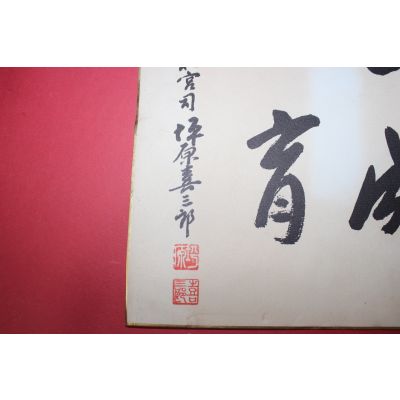 成
育
宮司 坪原喜三郎